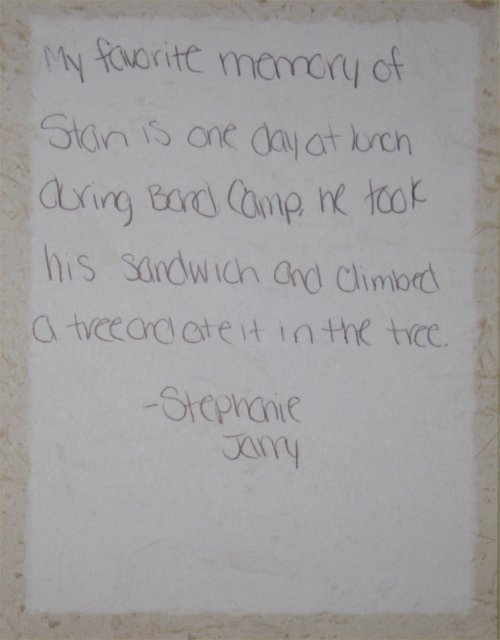 My favorite memory of
Stan is one day at lunch
during Band Camp. he took
his sandwich and climbed
a tree and ate it in the tree.
-Stephanie
Jarry